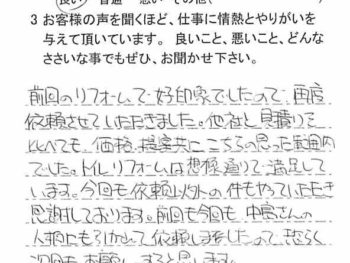 良い 普通 悪い その他(
3 お客様の声を聞くほど、仕事に情熱とやりがいを
与えて頂いています。 良いこと、悪いこと、どんな
ささいな事でもぜひ、お聞かせ下さい。
前回のリフォームで好印象でしたので、再度
依頼させていただきました。他社と見積りを
比べても、価格、提案共にこちらの思った範囲内
でした。トイレリフォームは想像通りで満足して
います。今回も依頼以外の件もやっていただき
感謝しております。前回も今回も中宮さんの
人柄にも引かれて依頼しましたので、恐らく
次回もお願いすると思います。